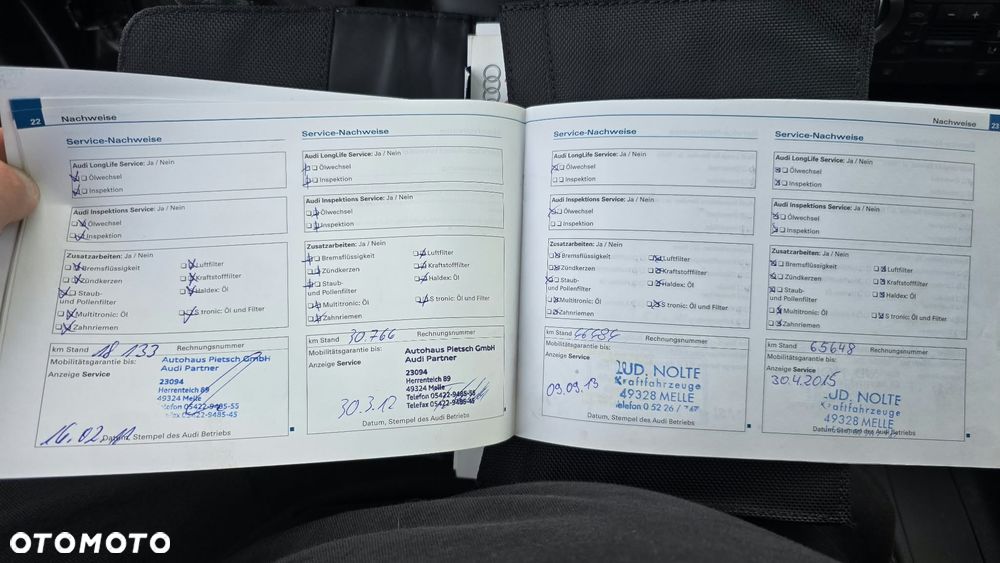 22
Service-Nachweise
Audi LongLife Service: Ja / Nein
Ölwechsel
Inspektion
Audi Inspektions Service: Ja / Nein
Ölwechsel
Inspektion
Zusatzarbeiten: Ja / Nein
Bremsflüssigkeit
Zündkerzen
Staub-
und Pollenfilter
Multitronic: Öl
Zahnriemen
Luftfilter
Kraftstofffilter
Haldex: Öl
S tronic: Öl und Filter
km Stand 18 133 Rechnungsnummer
Mobilitätsgarantie bis:
Anzeige Service
Autohaus Pietsch GmbH
Audi Partner
23094
Herrenteich 89
49324 Melle
Telefon 05422-9485-55
Telefax 05422-9485-45
16.02.
Datum, Stempel des Audi Betriebs
Service-Nachweise
Audi LongLife Service: Ja / Nein
Ölwechsel
Inspektion
Audi Inspektions Service: Ja / Nein
Ölwechsel
Inspektion
Zusatzarbeiten: Ja / Nein
Bremsflüssigkeit
Zündkerzen
Staub-
und Pollenfilter
Multitronic: Öl
Zahnriemen
Luftfilter
Kraftstofffilter
Haldex: Öl
S tronic: Öl und Filter
km Stand 30.766 Rechnungsnummer
Mobilitätsgarantie bis:
Anzeige Service
Autohaus Pietsch GmbH
Audi Partner
23094
Herrenteich 89
49324 Melle
Telefon 05422-9485-55
Telefax 05422-9485-45
30.3.12
Datum, Stempel des Audi Betriebs
Nachweise 23
Service-Nachweise
Audi LongLife Service: Ja / Nein
Ölwechsel
Inspektion
Audi Inspektions Service: Ja / Nein
Ölwechsel
Inspektion
Zusatzarbeiten: Ja / Nein
Bremsflüssigkeit
Zündkerzen
Staub-
und Pollenfilter
Multitronic: Öl
Zahnriemen
Luftfilter
Kraftstofffilter
Haldex: Öl
S tronic: Öl und Filter
km Stand Rechnungsnummer
Mobilitätsgarantie bis:
Anzeige Service
LUD. NOLTE
Kraftfahrzeuge
49328 MELLE
Telefon 0 52 26 /
09.09.13
Datum, Stempel des Audi Betriebs
Service-Nachweise
Audi LongLife Service: Ja / Nein
Ölwechsel
Inspektion
Audi Inspektions Service: Ja / Nein
Ölwechsel
Inspektion
Zusatzarbeiten: Ja / Nein
Bremsflüssigkeit
Zündkerzen
Staub-
und Pollenfilter
Multitronic: Öl
Zahnriemen
Luftfilter
Kraftstofffilter
Haldex: Öl
S tronic: Öl und Filter
km Stand 65648 Rechnungsnummer
Mobilitätsgarantie bis:
Anzeige Service
30.4.2015
LUD. NOLTE
Kraftfahrzeuge
49328 MELLE
Datum, Stempel des Audi Betriebs
OTOMOTO